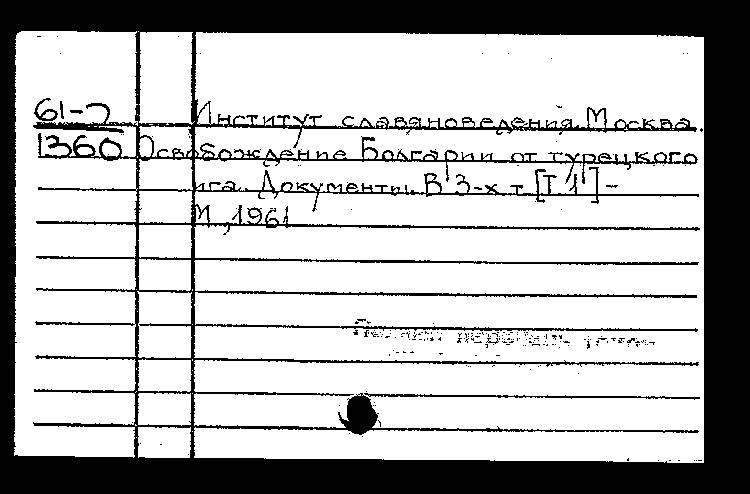 61-7 Институт славяноведения. Москва.
1360 Освобождение Болгарии от турецкого
ига. Документы. В 3-х т. [Т.1] -
М., 1961